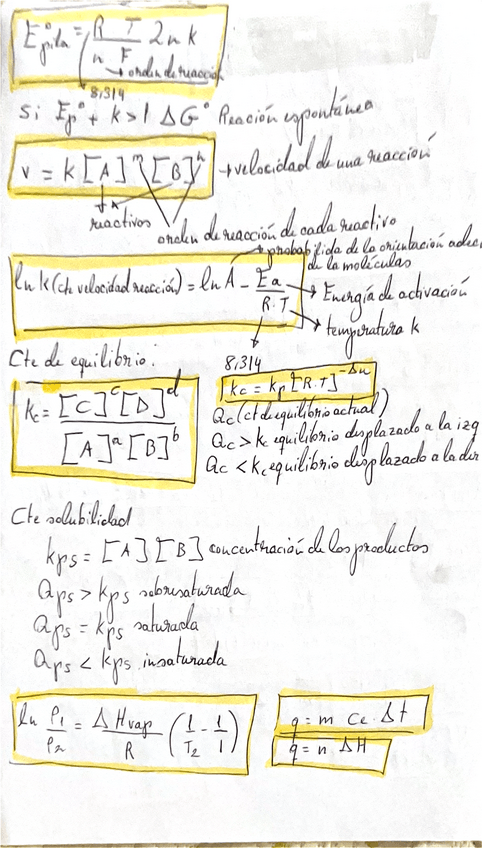 E°pila = R T / n F 2n k
→ orden de reacción
8,314
Si Ep° + k > 1 ΔG° Reación espontánea
v = k [A]^m [B]^n → velocidad de una reacción
reactivos
orden de reacción de cada reactivo
probabilida de la orientación adec.
de la moléculas
ln k (cte velocidad reacción) = ln A - Ea / R·T
→ Energía de activación
→ temperatura k
8,314
Cte de equilibrio:
kc = kp [R·T]^-Δn
kc = [C]^c [D]^d / [A]^a [B]^b
Qc (ct de equilibrio actual)
Qc > kc equilibrio desplazado a la izq
Qc < kc equilibrio desplazado a la der
Cte solubilidad
kps = [A] [B] concentración de los productos
Qps > kps sobresaturada
Qps = kps saturada
Qps < kps insaturada
ln P1 / P2 = Δ Hvap / R (1/T2 - 1/1)
q = m Ce · Δt
q = n ΔH